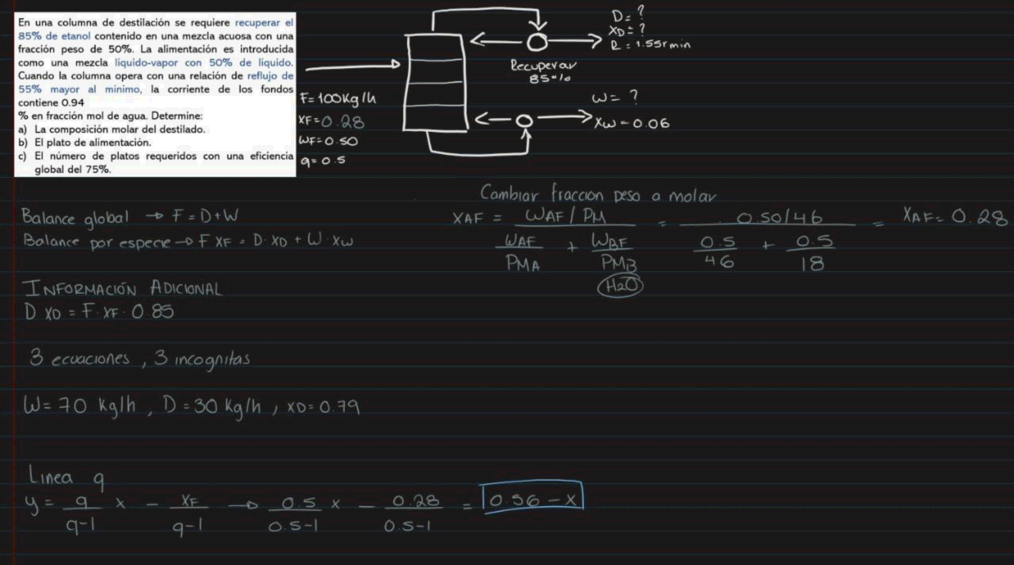 En una columna de destilación se requiere recuperar el
85% de etanol contenido en una mezcla acuosa con una
fracción peso de 50%. La alimentación es introducida
como una mezcla líquido-vapor con 50% de líquido.
Cuando la columna opera con una relación de reflujo de
55% mayor al mínimo, la corriente de los fondos
contiene 0.94
% en fracción mol de agua. Determine:
a) La composición molar del destilado.
b) El plato de alimentación.
c) El número de platos requeridos con una eficiencia
global del 75%.
F=100Kg/h
XF=0.28
WF=0.50
q=0.5
D=?
XD=?
R=1.55rmin
Recuperar
85%
W= ?
XW=0.06
Cambiar fraccion peso a molar
Balance global → F=D+W
Balance por especie → F XF = D·XD + W·XW
XAF = WAF/PM / WAF/PMA + WBF/PMB = 0.50/46 / 0.5/46 + 0.5/18 = XAF=0.28
H2O
INFORMACIÓN ADICIONAL
D XD = F·XF·0.85
3 ecuaciones, 3 incognitas
W=70 Kg/h, D=30 Kg/h, XD=0.79
Linea q
y= q/q-1 x - XF/q-1 → 0.5/0.5-1 x - 0.28/0.5-1 = 0.56-x